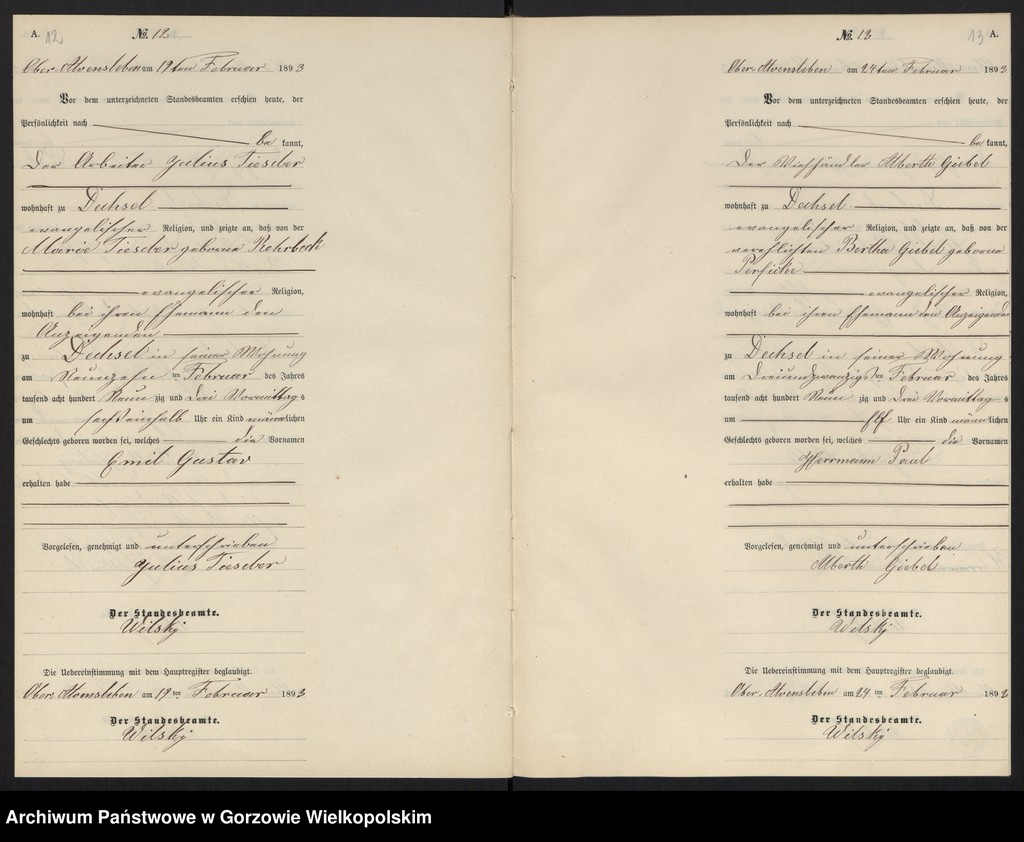 A. 12 No. 12
Ober-Alvensleben am 19ten Februar 1893
Vor dem unterzeichneten Standesbeamten erschien heute, der
Persönlichkeit nach
be kannt,
Der Arbeiter Julius Tiesder
wohnhaft zu Dechsel
evangelischer Religion, und zeigte an, daß von der
Marie Tiesder geborene Rehrbeck
evangelischer Religion,
wohnhaft bei ihren Ehemann den
Anzeigenden
zu Dechsel in seiner Wohnung
am Neunzehn ten Februar des Jahres
tausend acht hundert Neun zig und Drei Vormittag s
um sechseinhalb Uhr ein Kind männlichen
Geschlechts geboren worden sei, welches die Vornamen
Emil Gustav
erhalten habe
Vorgelesen, genehmigt und unterschrieben
Julius Tiesder
Der Standesbeamte.
Wilsky
Die Uebereinstimmung mit dem Hauptregister beglaubigt.
Ober-Alvensleben am 19 ten Februar 1893
Der Standesbeamte.
Wilsky
No. 13 13 A.
Ober-Alvensleben am 24ten Februar 1893
Vor dem unterzeichneten Standesbeamten erschien heute, der
Persönlichkeit nach
be kannt,
Der Viehhändler Alberth Giebel
wohnhaft zu Dechsel
evangelischer Religion, und zeigte an, daß von der
verehlichten Bertha Giebel geborene
evangelischer Religion,
wohnhaft bei ihren Ehemann den Anzeigenden
zu Dechsel in seiner Wohnung
am Dreiundzwanzigs ten Februar des Jahres
tausend acht hundert Neun zig und Drei Vormittag s
um Elf Uhr ein Kind männlichen
Geschlechts geboren worden sei, welches die Vornamen
Herrmann Paul
erhalten habe
Vorgelesen, genehmigt und unterschrieben
Alberth Giebel
Der Standesbeamte.
Wilsky
Die Uebereinstimmung mit dem Hauptregister beglaubigt.
Ober-Alvensleben am 24 ten Februar 1893
Der Standesbeamte.
Wilsky
Archiwum Państwowe w Gorzowie Wielkopolskim